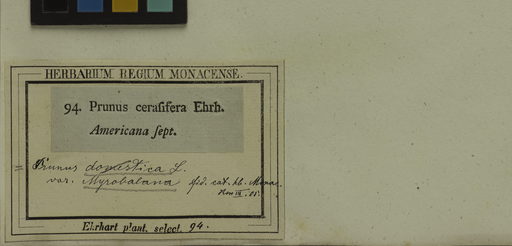 HERBARIUM REGIUM MONACENSE.
94. Prunus ceraſifera Ehrh.
Americana ſept.
= Prunus domestica L.
var. Myrobalana fid. cat. hb. Monac.
Ehrhart plant. select. 94.